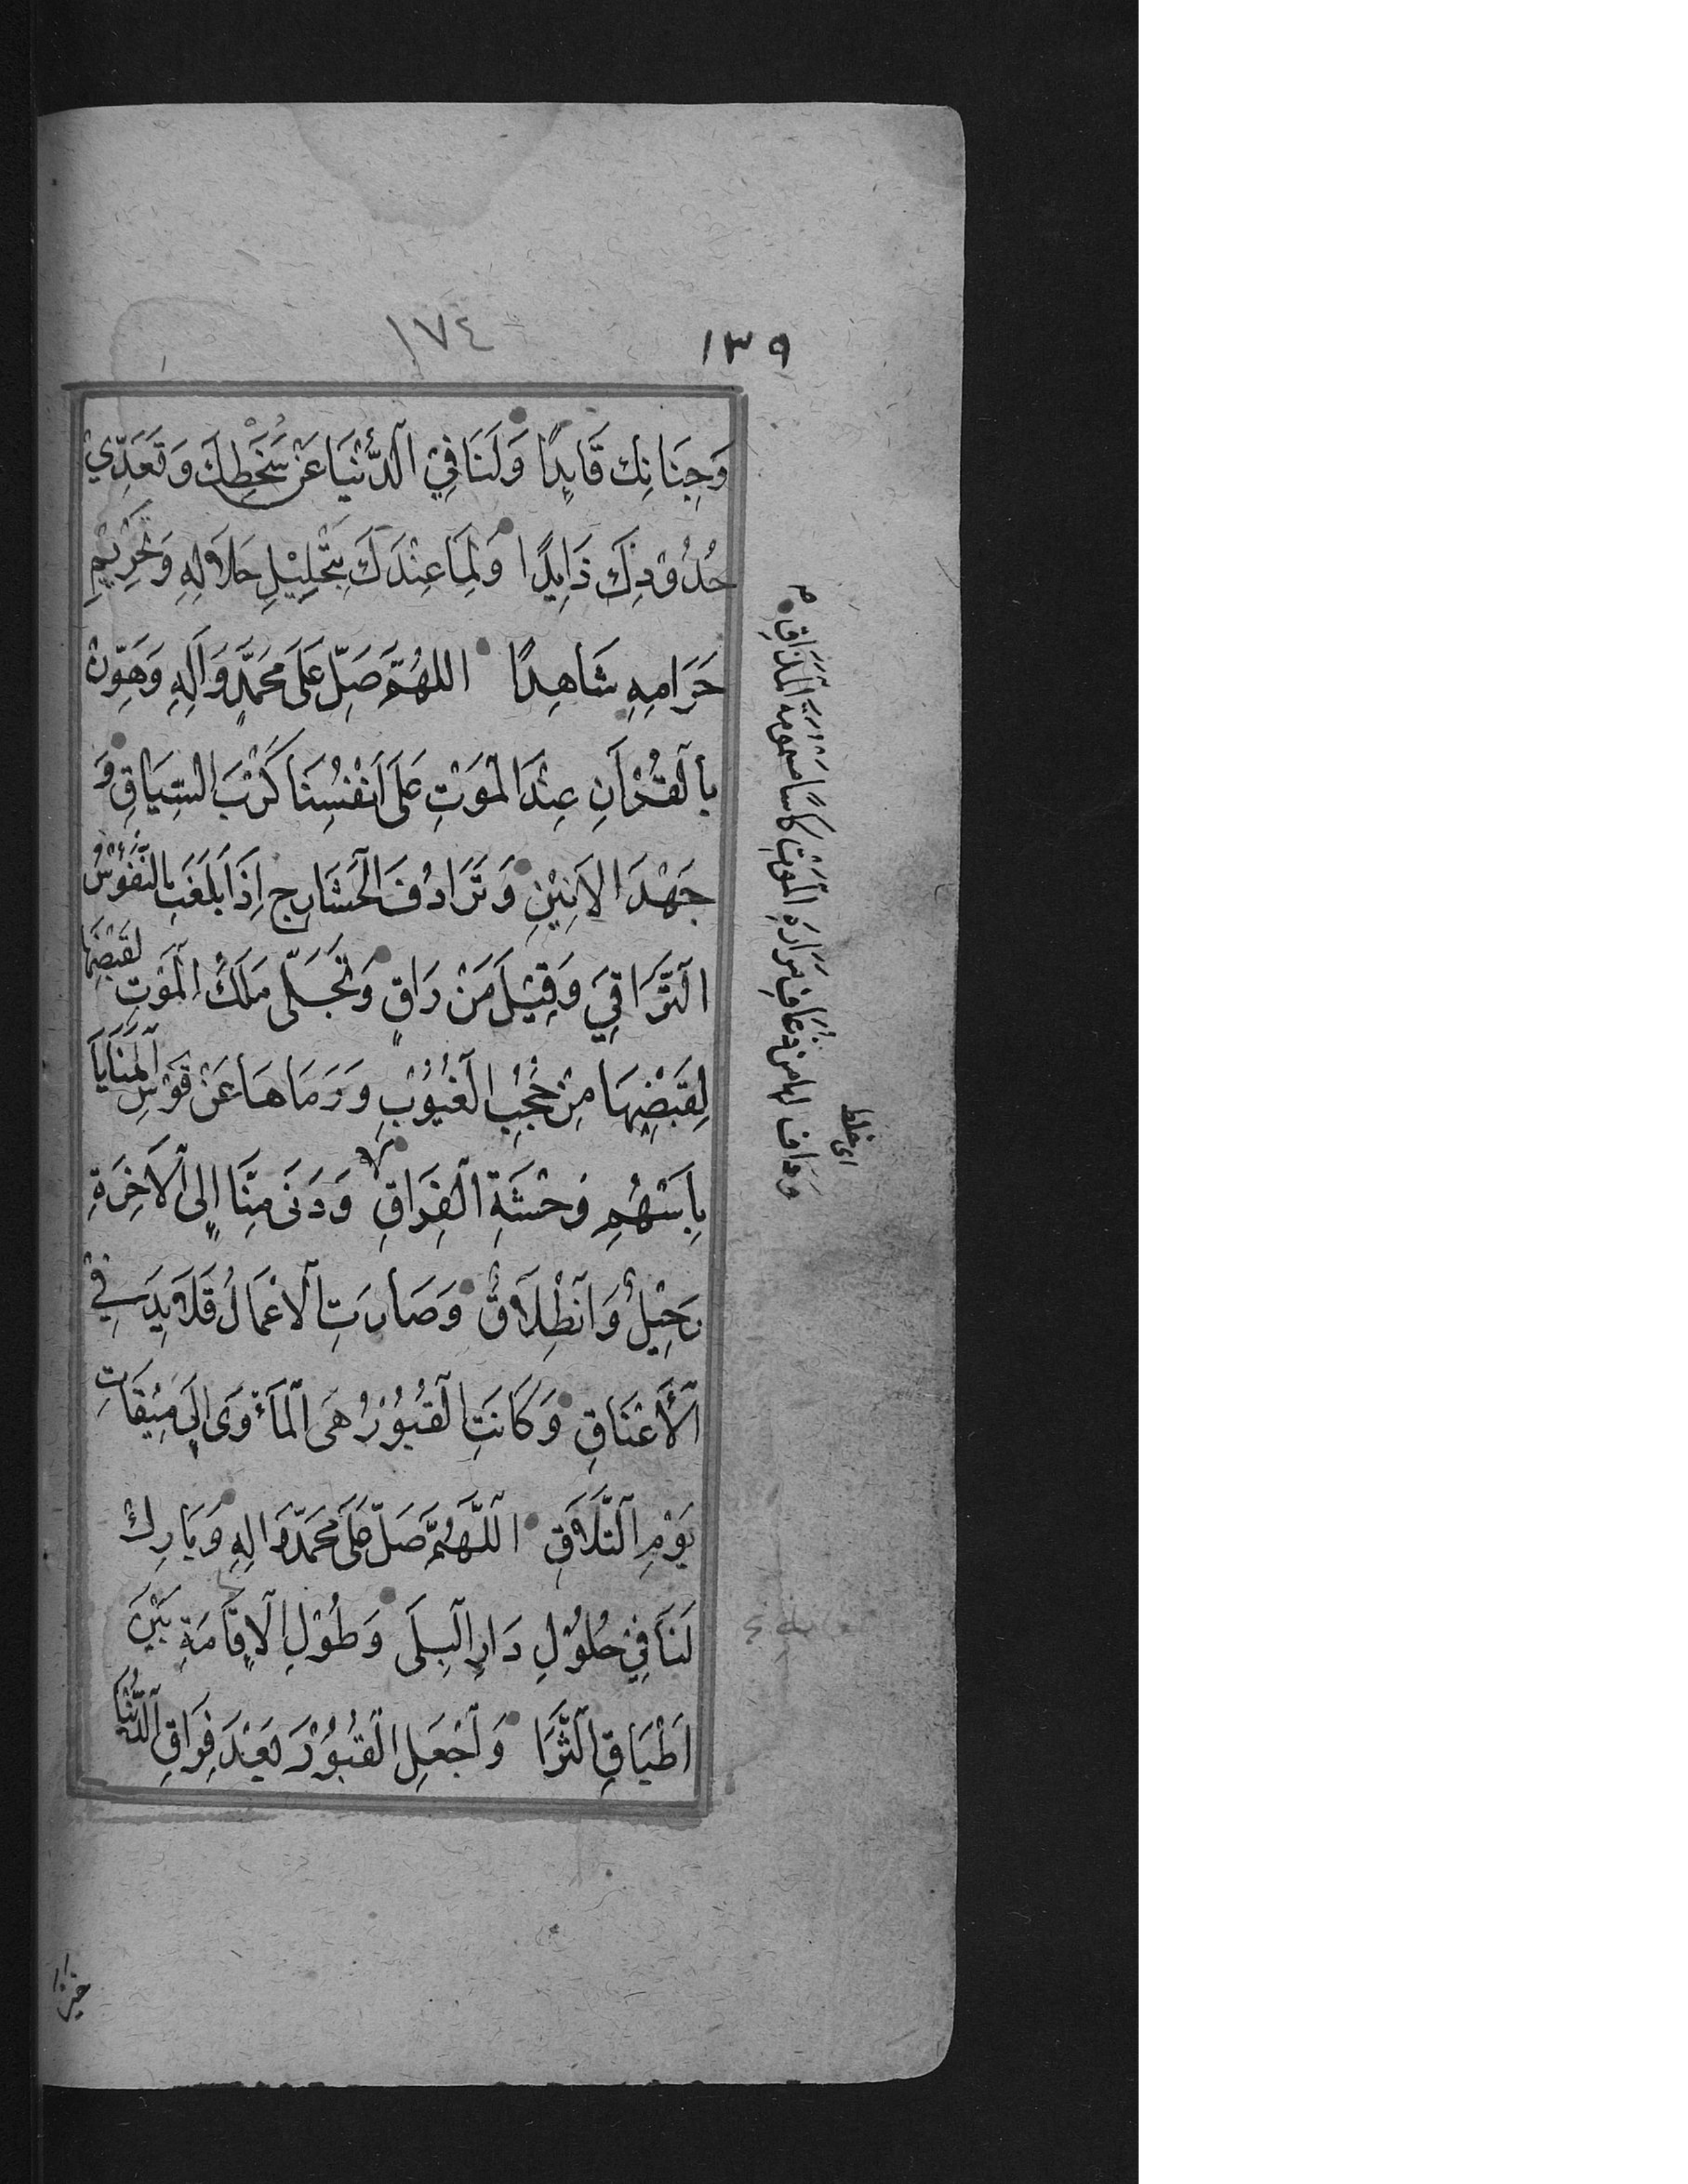 ١٧٤
١٣٩
وَجِنَانِكَ قَايِدًا وَلَنَا فِي الدُّنْيَا عَنْ سَخَطِكَ وَتَعَدِّيْ
حُدُوْدِكَ ذَايِدًا وَلِمَا عِنْدَكَ بِتَحْلِيْلِ حَلَالِهِ وَتَحْرِيْمِ
حَرَامِهِ شَاهِدًا اللهُمَّ صَلِّ عَلَى مُحَمَّدٍ وَآلِهِ وَهَوِّنْ
بِالْقُرْآنِ عِنْدَ الْمَوْتِ عَلَى اَنْفُسِنَا كَرْبَ السِّيَاقِ وَ
جَهْدَ الْاَنِيْنِ وَتَرَادُفَ الْحَشَارِجِ اِذَا بَلَغَتِ النُّفُوْسُ
التَّرَاقِيَ وَقِيْلَ مَنْ رَاقٍ وَتَجَلّٰى مَلَكُ الْمَوْتِ لِقَبْضِهَا
لِقَبْضِهَا مِنْ حُجُبِ الْغُيُوْبِ وَرَمَاهَا عَنْ قَوْسِ الْمَنَايَا
بِاَسْهُمِ وَحْشَةِ الْفِرَاقِ وَدَنٰى مِنَّا اِلَى الْآخِرَةِ
رَحِيْلٌ وَانْطِلَاقٌ وَصَارَتِ الْاَعْمَالُ قَلَايِدَ فِي
الْأَعْنَاقِ وَكَانَتِ الْقُبُوْرُ هِيَ الْمَأْوٰى اِلٰى مِيْقَاتِ
يَوْمِ التَّلَاقِ اللّٰهُمَّ صَلِّ عَلٰى مُحَمَّدٍ وَآلِهِ وَبَارِكْ
لَنَا فِيْ حُلُوْلِ دَارِ الْبِلَى وَطُوْلِ الْاِقَامَةِ بَيْنَ
اَطْبَاقِ الثَّرَا وَاجْعَلِ الْقُبُوْرَ بَعْدَ فِرَاقِ الدُّنْيَا
وداف لها من ذعاف مرارة الموت كاسا مسمومة المذاق
اى خلط